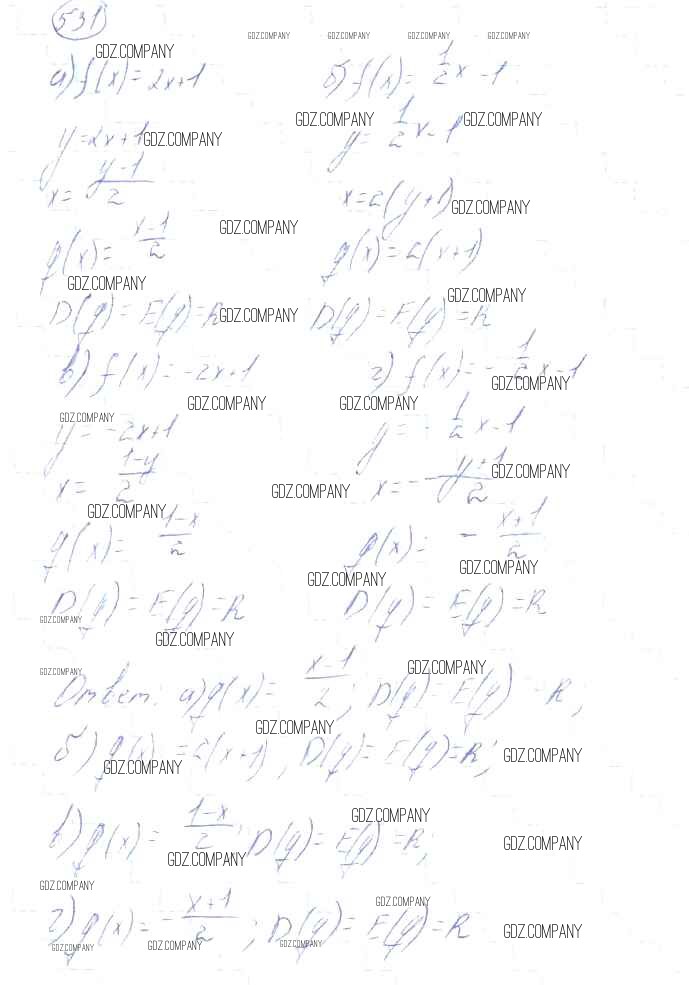 531
GDZ.COMPANY GDZ.COMPANY GDZ.COMPANY GDZ.COMPANY
GDZ.COMPANY
а) f(x) = 2x+1 б) f(x) = 1/2 x - 1
GDZ.COMPANY GDZ.COMPANY
y = 2x+1 GDZ.COMPANY y = 1/2 x - 1
x = (y-1)/2 x = 2(y+1) GDZ.COMPANY
GDZ.COMPANY
g(x) = (x-1)/2 g(x) = 2(x+1)
GDZ.COMPANY GDZ.COMPANY
D(g) = E(g) = R GDZ.COMPANY D(g) = E(g) = R
в) f(x) = -2x+1 г) f(x) = -1/2 x - 1
GDZ.COMPANY
GDZ.COMPANY GDZ.COMPANY
GDZ.COMPANY
y = -2x+1 y = -1/2 x - 1
GDZ.COMPANY
x = (1-y)/2 x = -(y+1)/2
GDZ.COMPANY
GDZ.COMPANY
g(x) = (1-x)/2 g(x) = -(x+1)/2
GDZ.COMPANY
GDZ.COMPANY
D(g) = E(g) = R D(g) = E(g) = R
GDZ.COMPANY
GDZ.COMPANY
GDZ.COMPANY GDZ.COMPANY
Ответ: а) g(x) = (x-1)/2; D(g) = E(g) = R;
GDZ.COMPANY
б) g(x) = 2(x+1), D(g) = E(g) = R; GDZ.COMPANY
GDZ.COMPANY
GDZ.COMPANY
в) g(x) = (1-x)/2; D(g) = E(g) = R; GDZ.COMPANY
GDZ.COMPANY
GDZ.COMPANY GDZ.COMPANY
г) g(x) = -(x+1)/2; D(g) = E(g) = R GDZ.COMPANY
GDZ.COMPANY GDZ.COMPANY GDZ.COMPANY